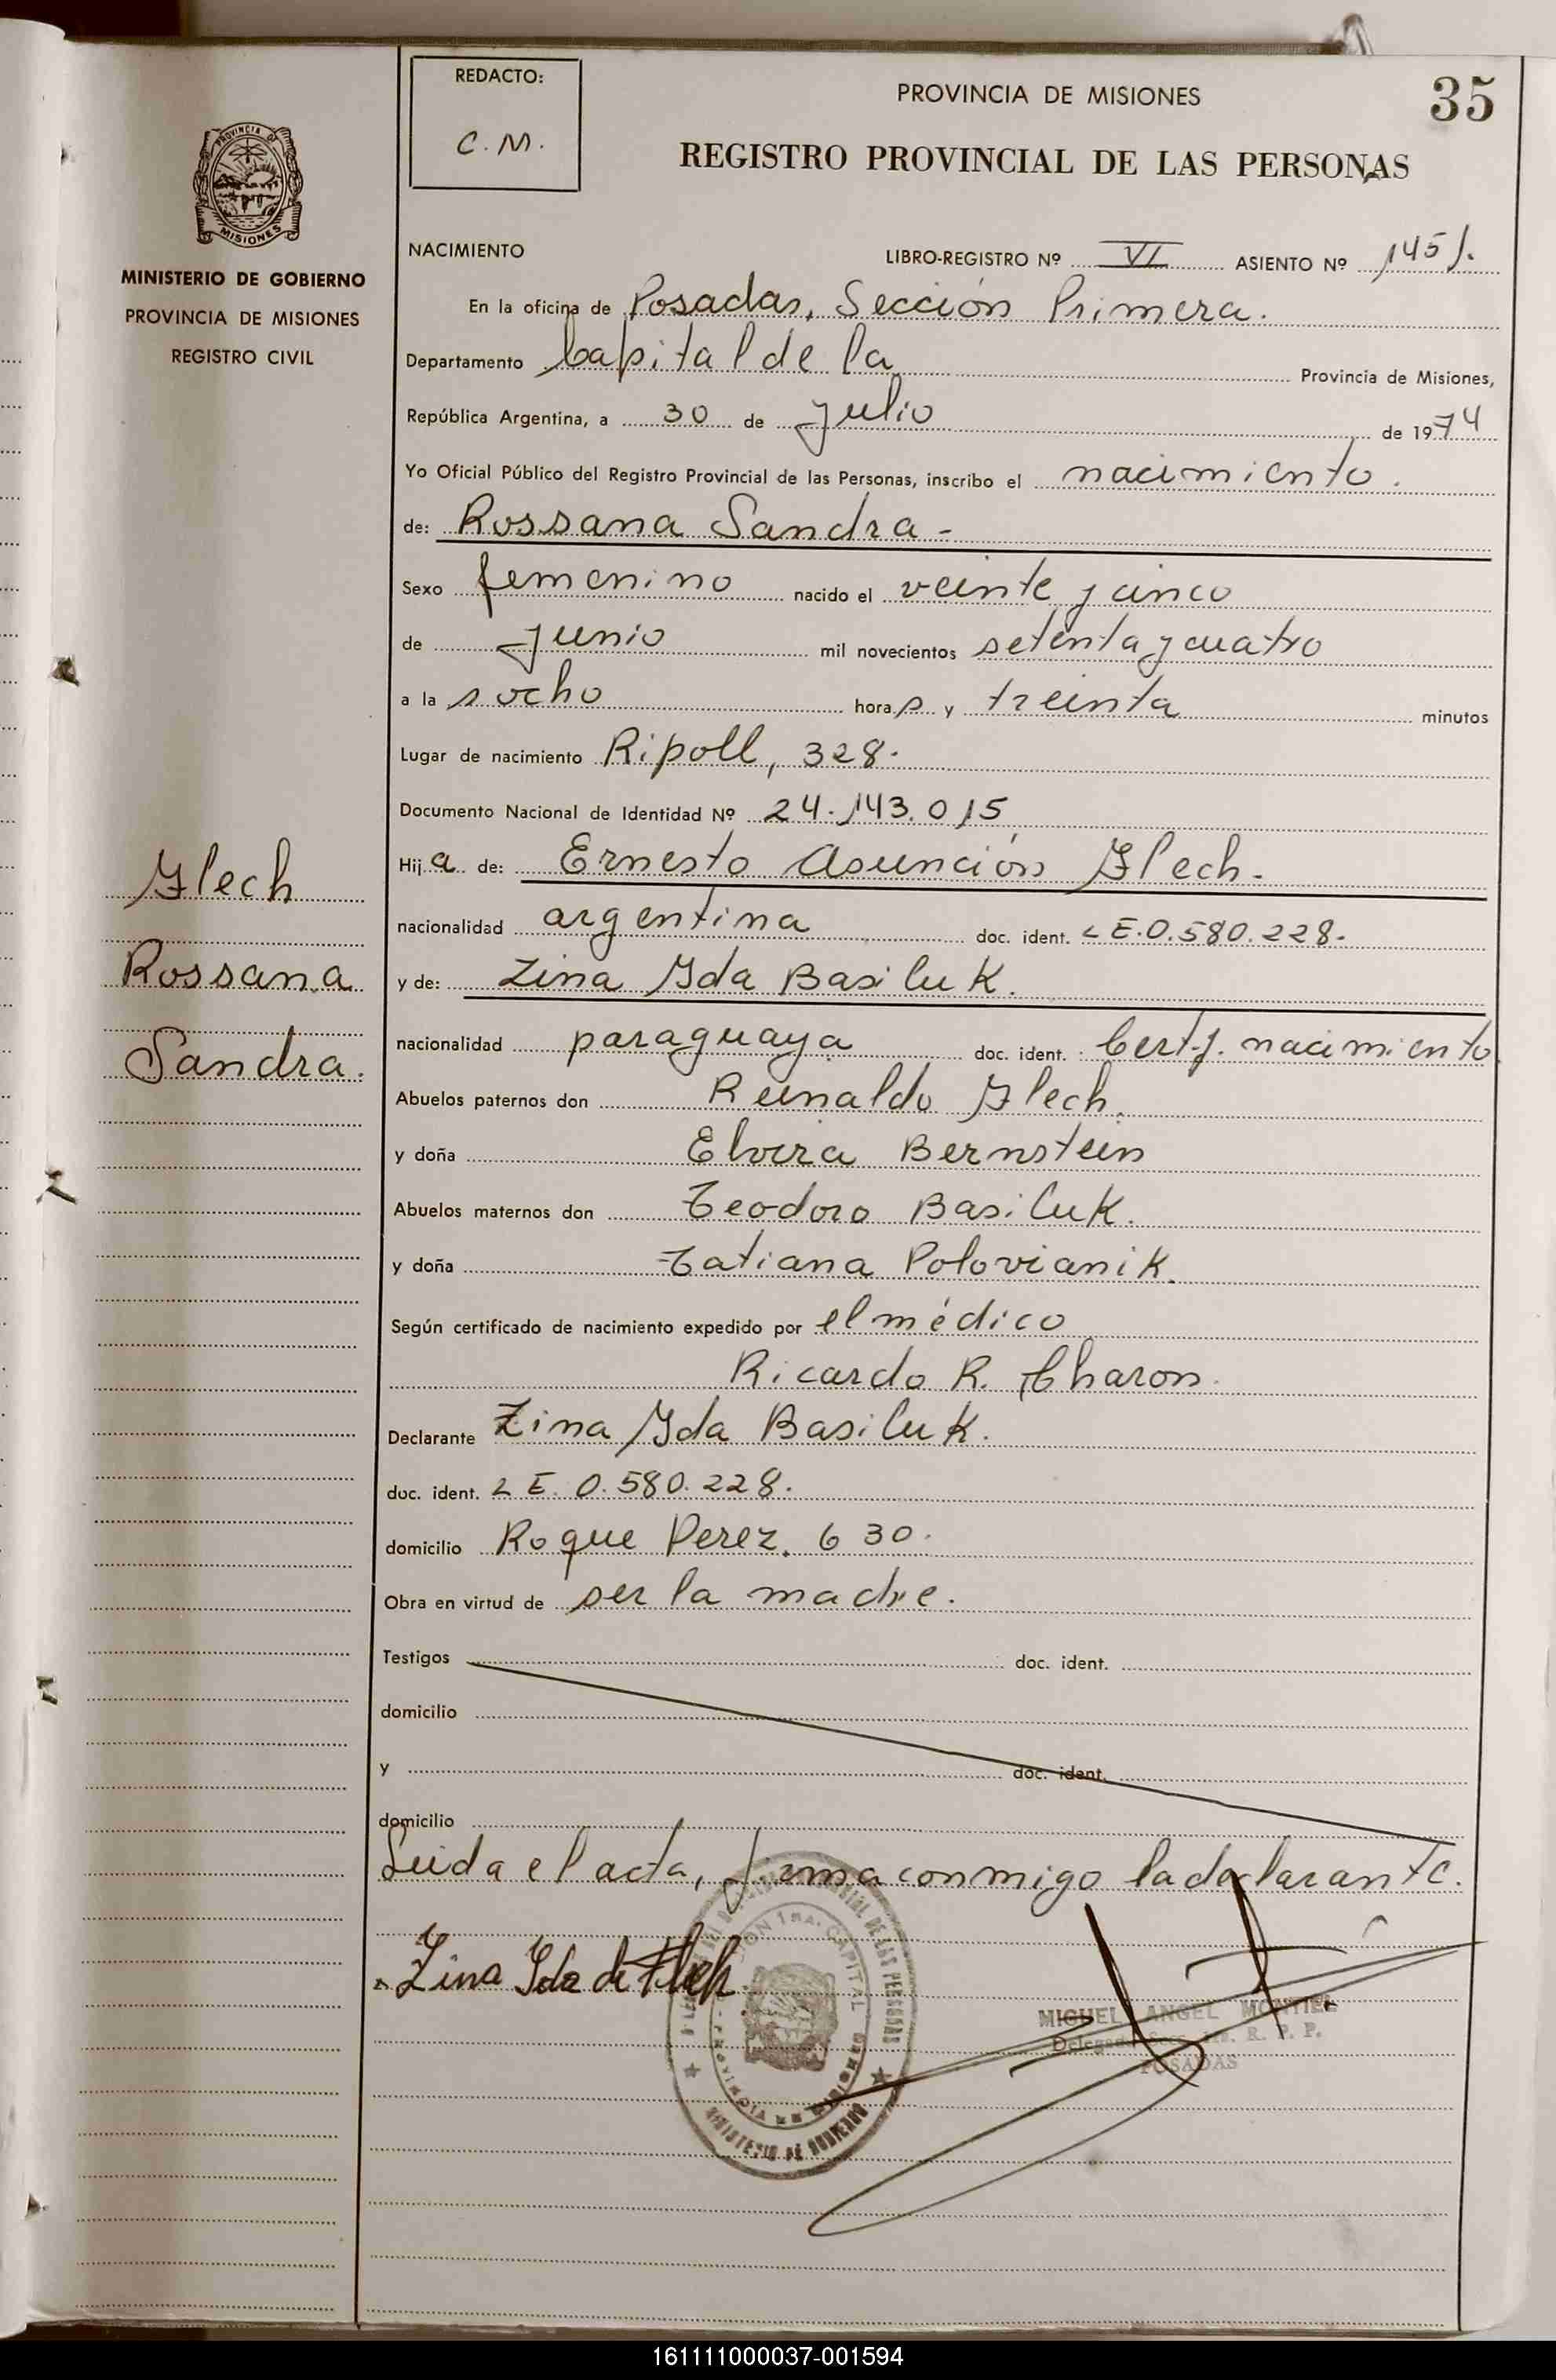 35
REDACTO:
C. M.
PROVINCIA DE MISIONES
REGISTRO PROVINCIAL DE LAS PERSONAS
PROVINCIA DE
MISIONES
MINISTERIO DE GOBIERNO
PROVINCIA DE MISIONES
REGISTRO CIVIL
NACIMIENTO LIBRO-REGISTRO Nº VI ASIENTO Nº 1451.
En la oficina de Posadas, Sección Primera.
Departamento Capital de la Provincia de Misiones,
República Argentina, a 30 de Julio de 1974
Yo Oficial Público del Registro Provincial de las Personas, inscribo el nacimiento.
de: Rossana Sandra -
Sexo femenino nacido el veinte y cinco
de Junio mil novecientos setenta y cuatro
a la s ocho hora s y treinta minutos
Lugar de nacimiento Ripoll, 328.
Documento Nacional de Identidad Nº 24.143.015
Hij a de: Ernesto Asunción Flech.
nacionalidad argentina doc. ident. LE.0.580.228.
y de: Zina Yda Basiluk.
nacionalidad paraguaya doc. ident. Certf. nacimiento
Abuelos paternos don Reinaldo Flech.
y doña Elvira Bernstein
Abuelos maternos don Teodoro Basiluk.
y doña Tatiana Polovianik.
Según certificado de nacimiento expedido por el médico
Ricardo R. Charon.
Declarante Zina Yda Basiluk.
doc. ident. LE. 0.580.228.
domicilio Roque Perez. 630.
Obra en virtud de ser la madre.
Testigos doc. ident.
domicilio
y doc. ident.
domicilio
Leida el acta, firma conmigo la declarante.
Flech
Rossana
Sandra.
Zina Yda de Flech
MIGUEL ANGEL MONTIEL
R. P. P.
POSADAS
MINISTERIO DE GOBIERNO
161111000037-001594